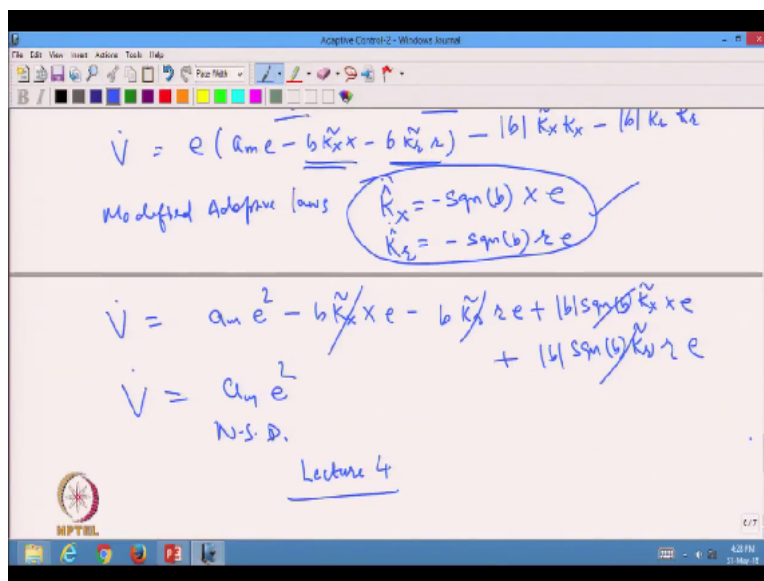 Adaptive Control-2 - Windows Journal
File Edit View Insert Actions Tools Help
Page Width
B I
V̇ = e (a_m e - b k̃_x x - b k̃_r r) - |b| k̃_x k̇_x - |b| k̃_r k̇_r
Modified Adaptive laws
k̂̇_x = -sgn(b) x e
k̂̇_r = - sgn(b) r e
V̇ = a_m e² - b k̃_x x e - b k̃_r r e + |b| sgn(b) k̃_x x e
+ |b| sgn(b) k̃_r r e
V̇ = a_m e²
N.S.D.
Lecture 4
NPTEL
4:28 PM
31-May-18